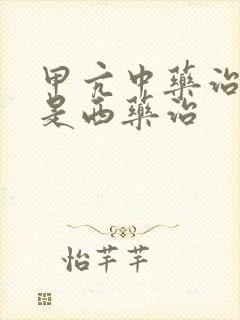 甲亢中藥治
是西藥治
怡芊芊